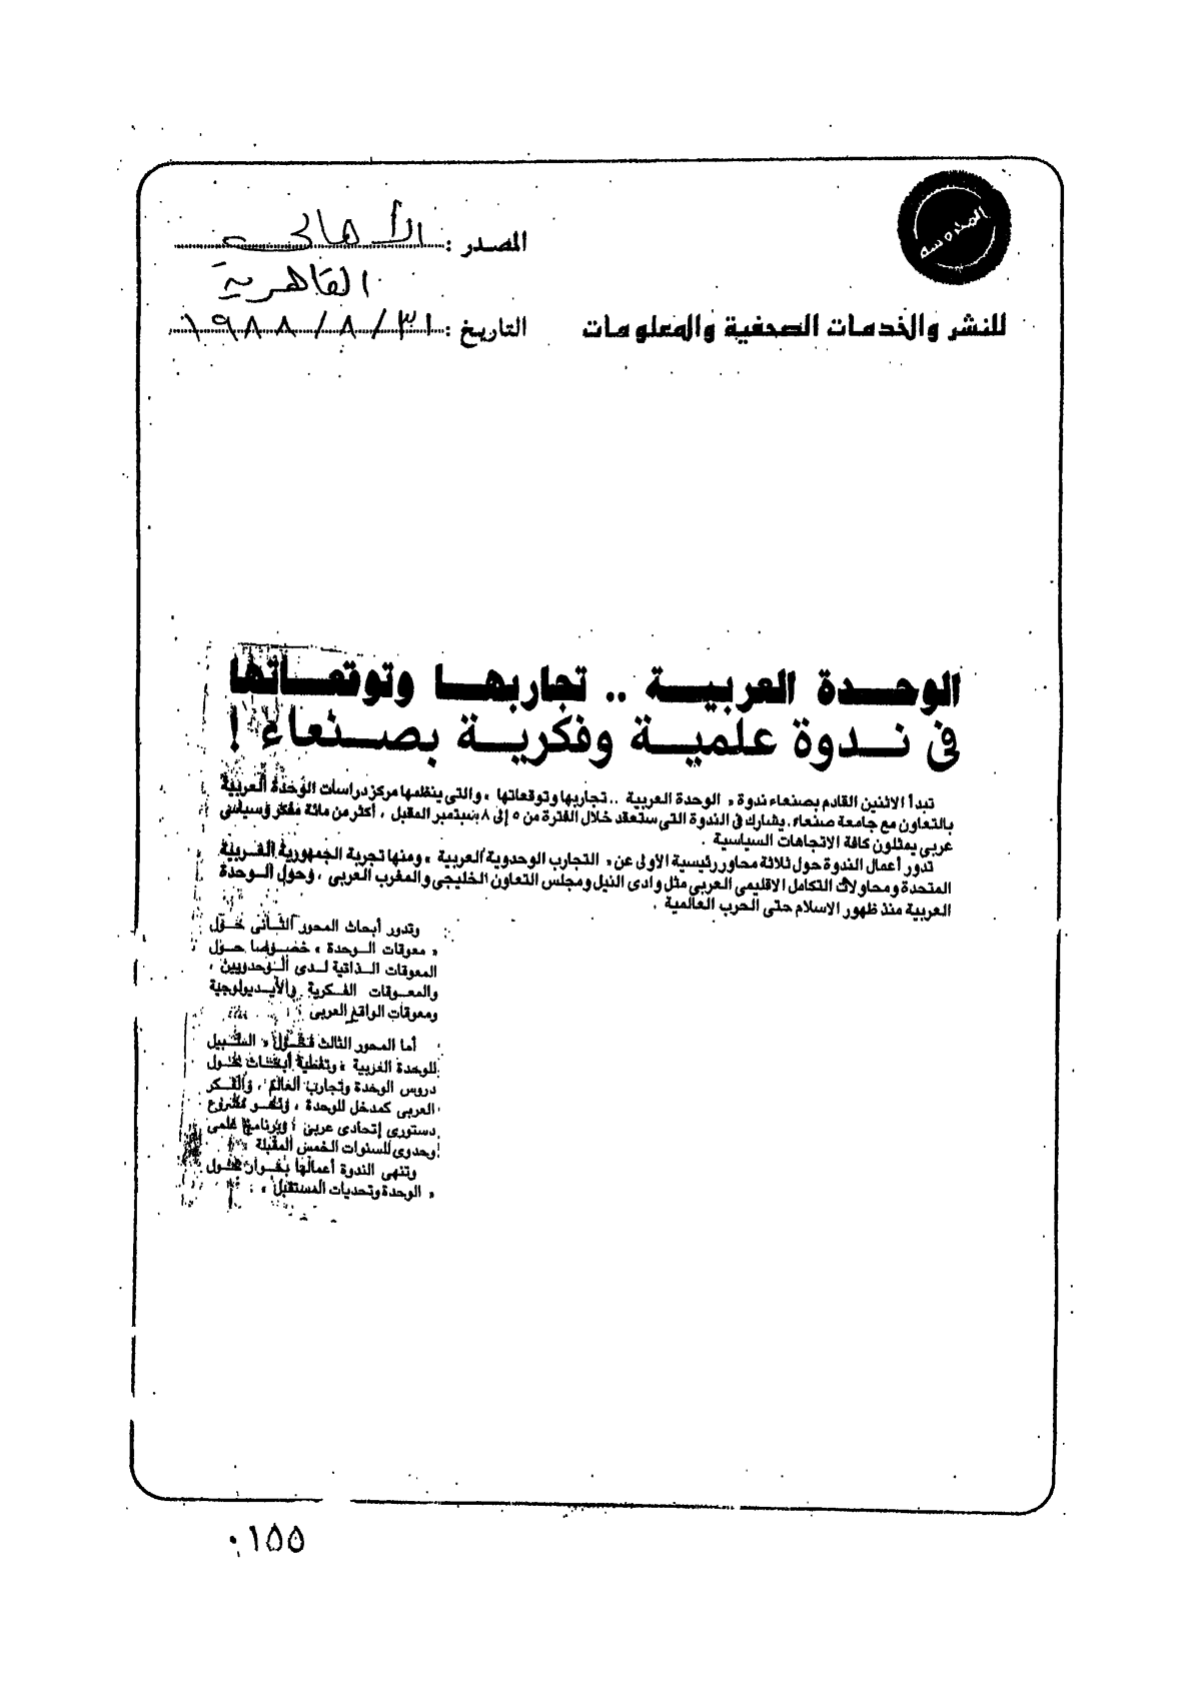 المدرسة
المصدر : الأهالى
القاهرية
للنشر والخدمات الصحفية والمعلومات
التاريخ : ٣١/٨/١٩٨٨
الوحدة العربية .. تجاربها وتوقعاتها
فى ندوة علمية وفكرية بصنعاء !
تبدأ الاثنين القادم بصنعاء ندوة « الوحدة العربية .. تجاربها وتوقعاتها » والتى ينظمها مركز دراسات الوحدة العربية
بالتعاون مع جامعة صنعاء . يشارك فى الندوة التى ستعقد خلال الفترة من ٥ إلى ٨ سبتمبر المقبل ، أكثر من مائة مفكر وسياسى
عربى يمثلون كافة الاتجاهات السياسية .
تدور أعمال الندوة حول ثلاثة محاور رئيسية الأولى عن « التجارب الوحدوية العربية » ومنها تجربة الجمهورية العربية
المتحدة ومحاولات التكامل الاقليمى العربى مثل وادى النيل ومجلس التعاون الخليجى والمغرب العربى ، وحول الوحدة
العربية منذ ظهور الاسلام حتى الحرب العالمية .
وتدور أبحاث المحور الثانى حول
« معوقات الوحدة » خصوصا حول
المعوقات الذاتية لدى الوحدويين ،
والمعوقات الفكرية والأيديولوجية
ومعوقات الواقع العربى
أما المحور الثالث فحول « السبيل
للوحدة العربية » وتغطية أبحاث حول
دروس الوحدة وتجارب العالم ، والفكر
العربى كمدخل للوحدة ، ونحو مشروع
دستورى إتحادى عربى ، وبرنامج علمى
وحدوى للسنوات الخمس المقبلة
وتنهى الندوة أعمالها بحوار حول
« الوحدة وتحديات المستقبل » .
٠١٥٥